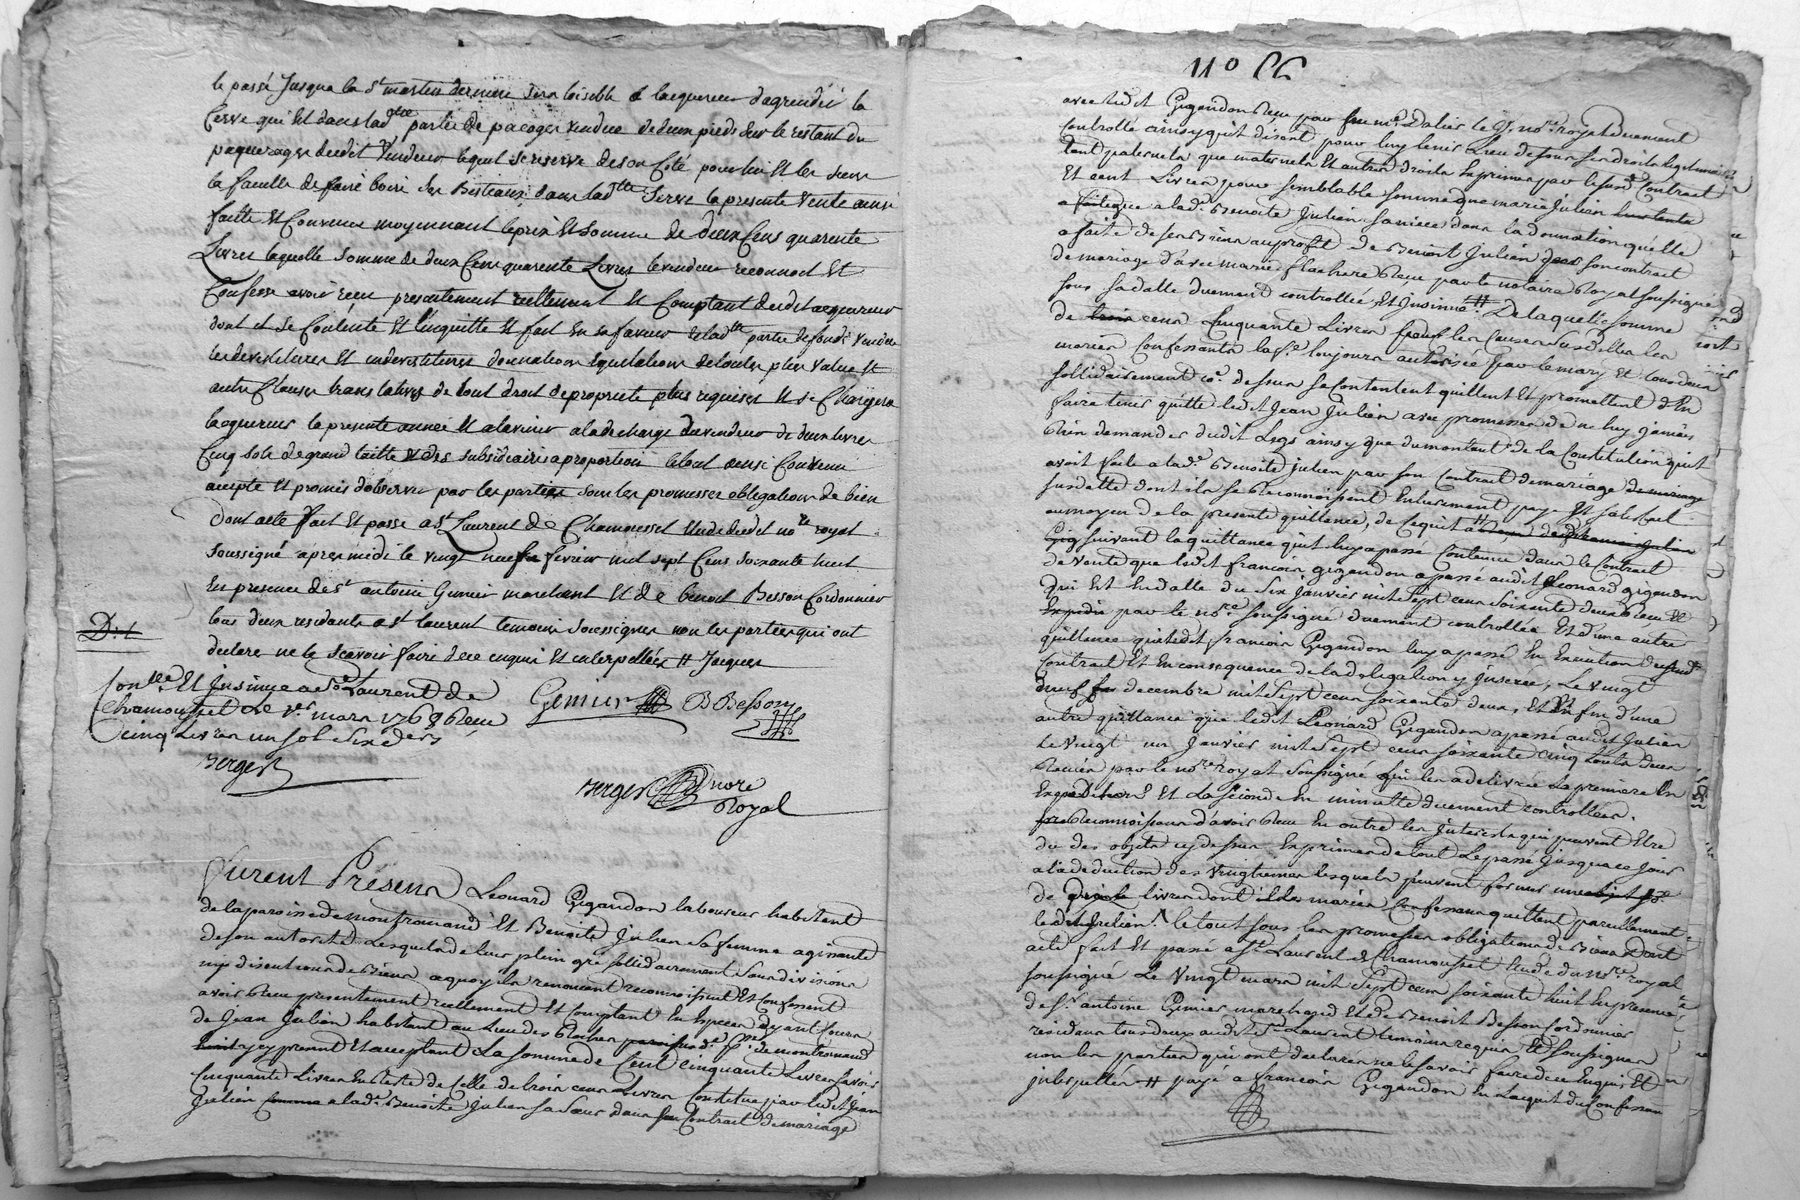 le passé Jusqua la St martin derniere sera loisible a lacquereur dagrendir la
Serve qui Est dans lad.tte partie de pacoger vendue de deux pieds sur le restant du
paquerages dudit Vendeur lequel se reserve de son Coté pour lui Et les siens
la faculté de faire boire ses Bestiaux dans lad.tte Serve la presente Vente ainsi
faitte Et Convenue moyennant le prix Et Somme de deux Cens quarente
Livres laquelle Somme de deux Cens quarente Livres le vendeur reconnoit Et
Confesse avoir reçu presentement reellement Et Comptant dudit acquereur
dont il se Contente Et l'enquitte Et fait En sa faveur de lad.tte partie de fonds Vendue
les devestitures Et indevestitures donnation de toutes plus value Et
autre Clauses translatives de tout droit de proprieté plus requises Et se Chargera
lacquereur la presente année Et alavenir aladecharge du vendeur de deux livres
Cinq sols de grand taille Et des subsidiaires aproportion letout ainsi Convenu
accepté Et promis dobserver par les parties sous les promesses obligations de bien
Dont acte fait Et passé a St Laurent de Chamousset Etude dudit no.re royal
Soussigné apres midi le vingt neuf fevrier mil sept Cens Soixante huit
En presence de Sr antoine Gemier marchant Et de benoit Besson Cordonnier
tous deux residants a St laurent temoins Soussignes non les parties qui ont
declaré ne le Scavoir faire de ce enquis Et interpellées # Jacques
Con.llé Et Insinué a St Laurent de
Chamousset Le 1.er mars 1768 Reçu
Cinq Livres un sol six deniers
Berger
Gemier B Besson
Berger nore
Royal
Furent Présens Léonard Gigandon laboureur habitant
de la paroisse de montromand Et Benoite Julien sa femme agissante
de son autorité Lesquels de leur plein gré sollidairement sans division
ny discution de Biens aquoy ils renoncent reconnoissent Et Confessent
avoir Reçu presentement reellement Et Comptant En Especes ayant Cours
de Jean Julien habitant au Lieu des Roches p.sse de montromand
icy present Et acceptant La somme de Cent Cinquante Livres Savoir
Cinquante Livres En Reste de Celle de trois cens Livres Constituée par ledit Jean
Julien a lad.e Benoite Julien sa Sœur dans son Contrat de mariage
N° 56
avec ledit Gigandon Reçu par feu m.e Dalier le J.e no.re royal duement
Controllé ainsy qu'il disent, pour luy tenir Lieu de tous ses droits legitimaires
tant paternels que maternels Et autres droits Exprimés par ledit Contract
Et cent Livres pour semblable somme que marie Julien
a leguée a lad.e Benoite Julien sa niece dans la donnation qu'elle
a faite de ses Biens au profit de Benoit Julien dans son contract
de mariage d'avec marie flachere Reçu par le notaire Royal soussigné
sous sa datte duement controllée, Et Insinué # De laquelle somme
de cens Cinquante Livres pour les Causes Susdittes les
mariés Confessants la f.e toujours autorisée par le mary Et tous deux
sollidairement co.e dessus se Contentent quittent Et promettent d'En
faire tenir quitte ledit Jean Julien avec promesse de ne luy jamais
Rien demander dudit Legs ainsy que du montant de la Constitution qu'il
avoit faite a lad.e Benoite julien par son Contrat de mariage de mariage
susdatté dont ils se Reconnoissent Entierement payé Et satisfait
au moyen de la presente quittance, de Ce qu'il
suivant la quittance qu'il luy a passé Contenue dans le Contract
de vente que ledit francois gigandon a passé audit Leonard gigandon
qui Est En datte du six janvier mil sept cens soixante deux Reçu Et
Expedié par le no.re soussigné duement controllée Et d'une autre
quittance que ledit francois Gigandon luy a passé En Execution dudit
Contrat Et En consequence de la delegation y inserée, Le vingt
neuf decembre mil sept cens soixante deux, Et En fin d'une
autre quittance que ledit Léonard Gigandon a passé audit Julien
Le vingt un Janvier mil sept cens soixante cinq toutes deux
Reçües par le no.re Royal soussigné qui les a delivrée La premiere En
Expedition Et La seconde En minutte duement controllées.
Reconnoissans d'avoir Reçu En outre les Interets qui peuvent Etre
du des objets cy dessus Exprimés de tout Le passé jusqua ce jour
a la deduction des Vingtiemes lesquels peuvent former
de livres dont les mariés Confessans quittent pareillement
ledit Julien. le tout sous les promesses obligations de Biens Dont
acte fait Et passé a St. Laurent de Chamousset Etude du no.re royal
soussigné Le vingt mars mil sept cens soixante huit En presence
de Sr. antoine Gemier marchand Et de Benoit Besson Cordonnier
residans tous deux audit St. Laurent temoins requis Et soussignes
non les parties qui ont declarés ne le savoir faire de ce Enquis Et
interpellés # payé a francois Gigandon En l'acquit du Confessant